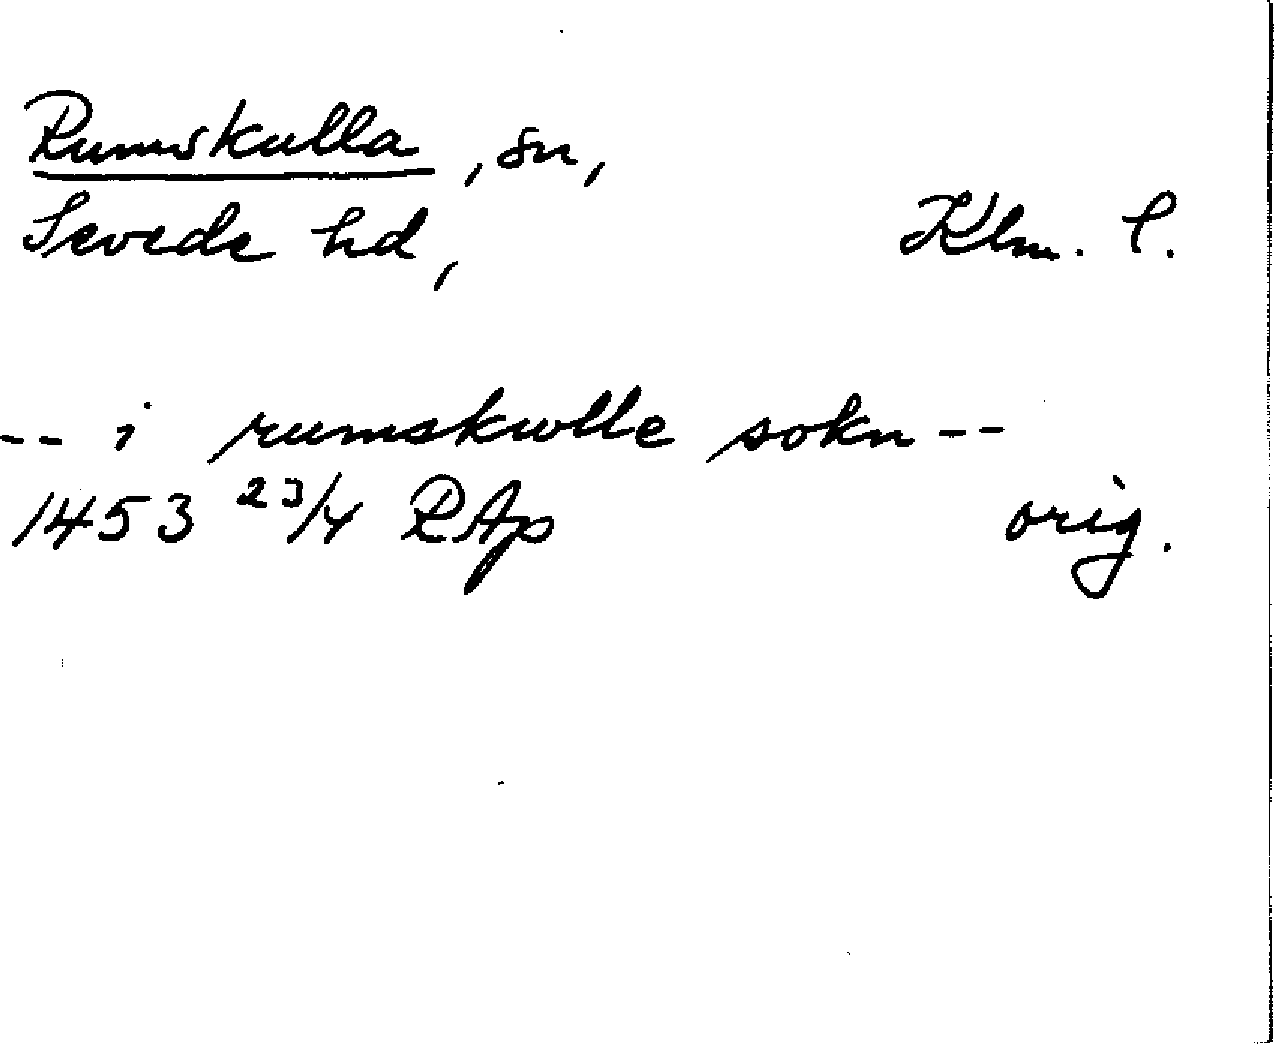 Rumskulla, sn,
Sevede hd, Klm. l.
-- i rumskwlle sokn --
1453 23/4 RAp orig.